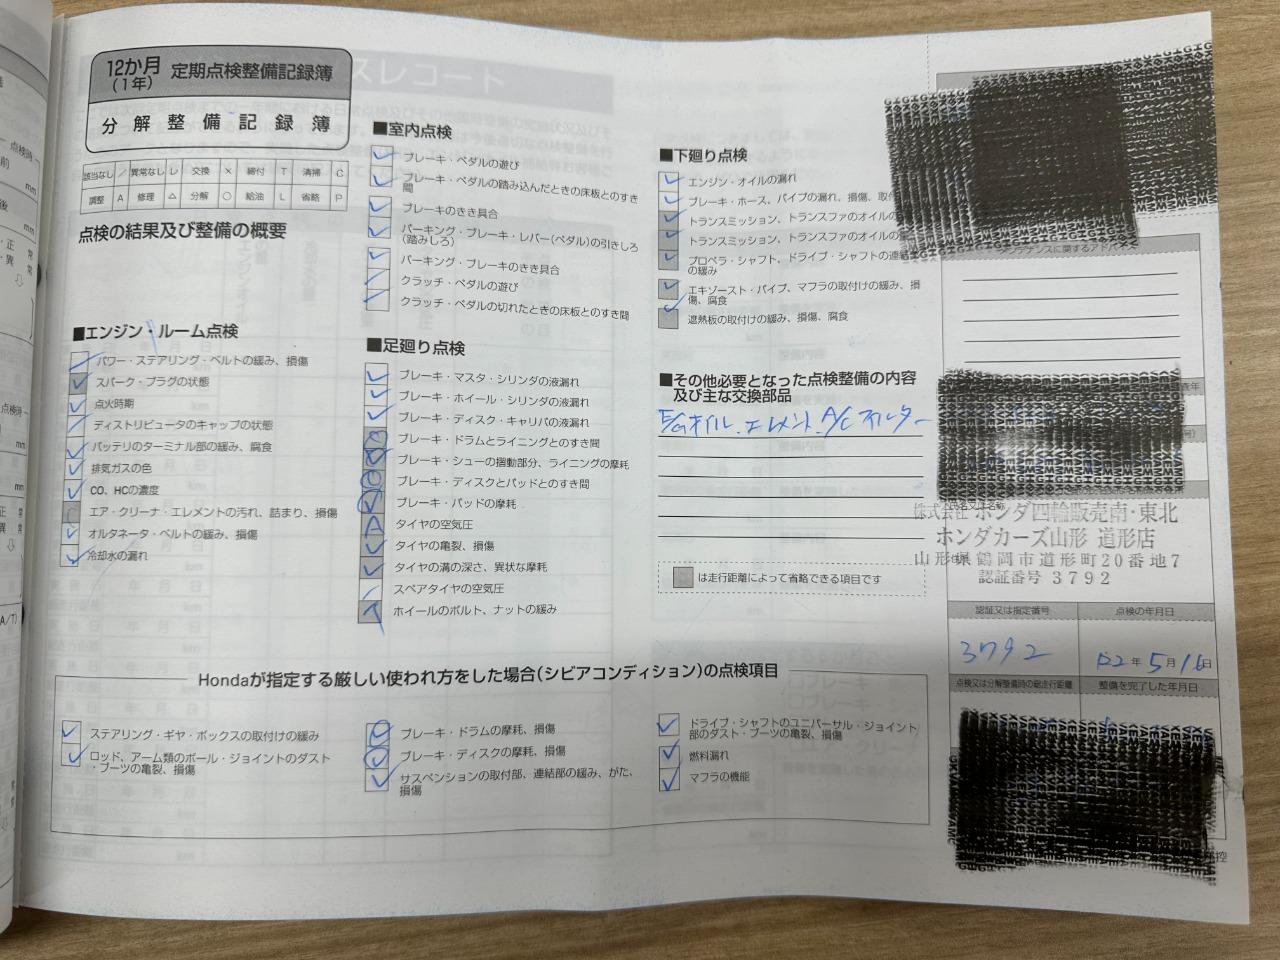 12か月
(1年)
定期点検整備記録簿
分解整備記録簿
該当なし / 異常なし レ 交換 × 締付 T 清掃 C
調整 A 修理 △ 分解 ○ 給油 L 省略 P
点検の結果及び整備の概要
■エンジン・ルーム点検
パワー・ステアリング・ベルトの緩み、損傷
スパーク・プラグの状態
点火時期
ディストリビュータのキャップの状態
バッテリのターミナル部の緩み、腐食
排気ガスの色
CO、HCの濃度
エア・クリーナ・エレメントの汚れ、詰まり、損傷
オルタネータ・ベルトの緩み、損傷
冷却水の漏れ
■室内点検
ブレーキ・ペダルの遊び
ブレーキ・ペダルの踏み込んだときの床板とのすき
間
ブレーキのきき具合
パーキング・ブレーキ・レバー(ペダル)の引きしろ
(踏みしろ)
パーキング・ブレーキのきき具合
クラッチ・ペダルの遊び
クラッチ・ペダルの切れたときの床板とのすき間
■足廻り点検
ブレーキ・マスタ・シリンダの液漏れ
ブレーキ・ホイール・シリンダの液漏れ
ブレーキ・ディスク・キャリパの液漏れ
ブレーキ・ドラムとライニングとのすき間
ブレーキ・シューの摺動部分、ライニングの摩耗
ブレーキ・ディスクとパッドとのすき間
ブレーキ・パッドの摩耗
A タイヤの空気圧
タイヤの亀裂、損傷
タイヤの溝の深さ、異状な摩耗
スペアタイヤの空気圧
T ホイールのボルト、ナットの緩み
■下廻り点検
エンジン・オイルの漏れ
ブレーキ・ホース、パイプの漏れ、損傷、取付
トランスミッション、トランスファのオイルの
トランスミッション、トランスファのオイルの
プロペラ・シャフト、ドライブ・シャフトの連結
の緩み
エキゾースト・パイプ、マフラの取付けの緩み、損
傷、腐食
遮熱板の取付けの緩み、損傷、腐食
■その他必要となった点検整備の内容
及び主な交換部品
E/Gオイル、エレメント、A/Cフィルター
は走行距離によって省略できる項目です
メンテナンスに関するアドバイス
株式会社 ホンダ四輪販売南・東北
ホンダカーズ山形 道形店
山形県鶴岡市道形町20番地7
認証番号 3792
認証又は指定番号
点検の年月日
3792
R2年5月16日
点検又は分解整備時の総走行距離
整備を完了した年月日
Hondaが指定する厳しい使われ方をした場合(シビアコンディション)の点検項目
ステアリング・ギヤ・ボックスの取付けの緩み
ロッド、アーム類のボール・ジョイントのダスト
・ブーツの亀裂、損傷
ブレーキ・ドラムの摩耗、損傷
ブレーキ・ディスクの摩耗、損傷
サスペンションの取付部、連結部の緩み、がた、
損傷
ドライブ・シャフトのユニバーサル・ジョイント
部のダスト・ブーツの亀裂、損傷
燃料漏れ
マフラの機能